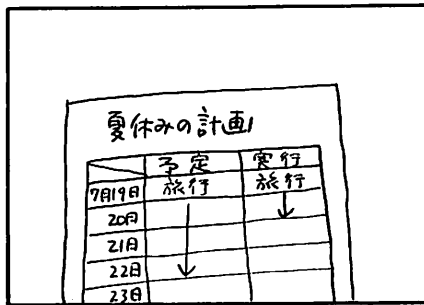 夏休みの計画
予定 実行
7月19日 旅行 旅行
20日
21日
22日
23日